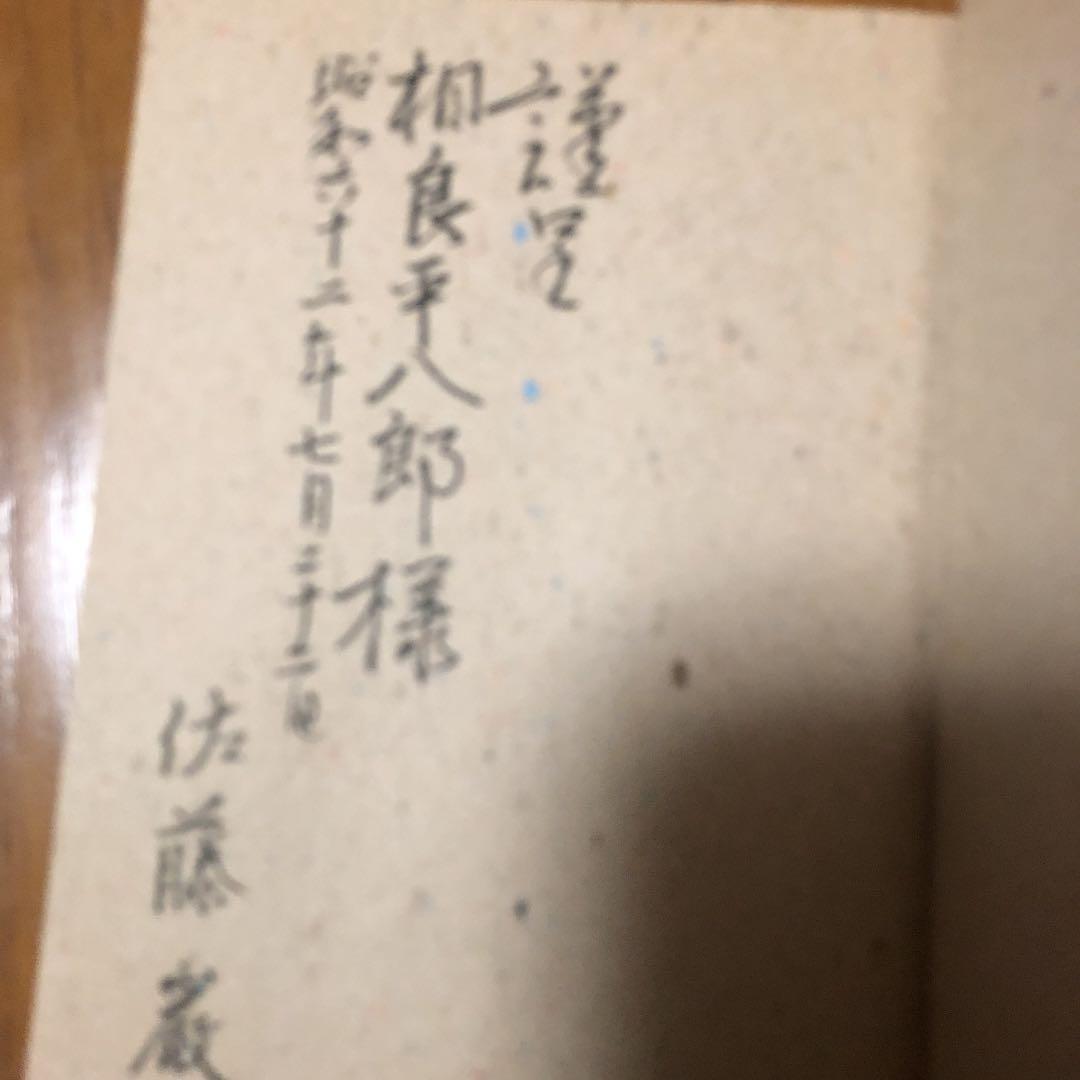 謹呈
相良平八郎様
昭和六十二年七月二十二日
佐藤巌